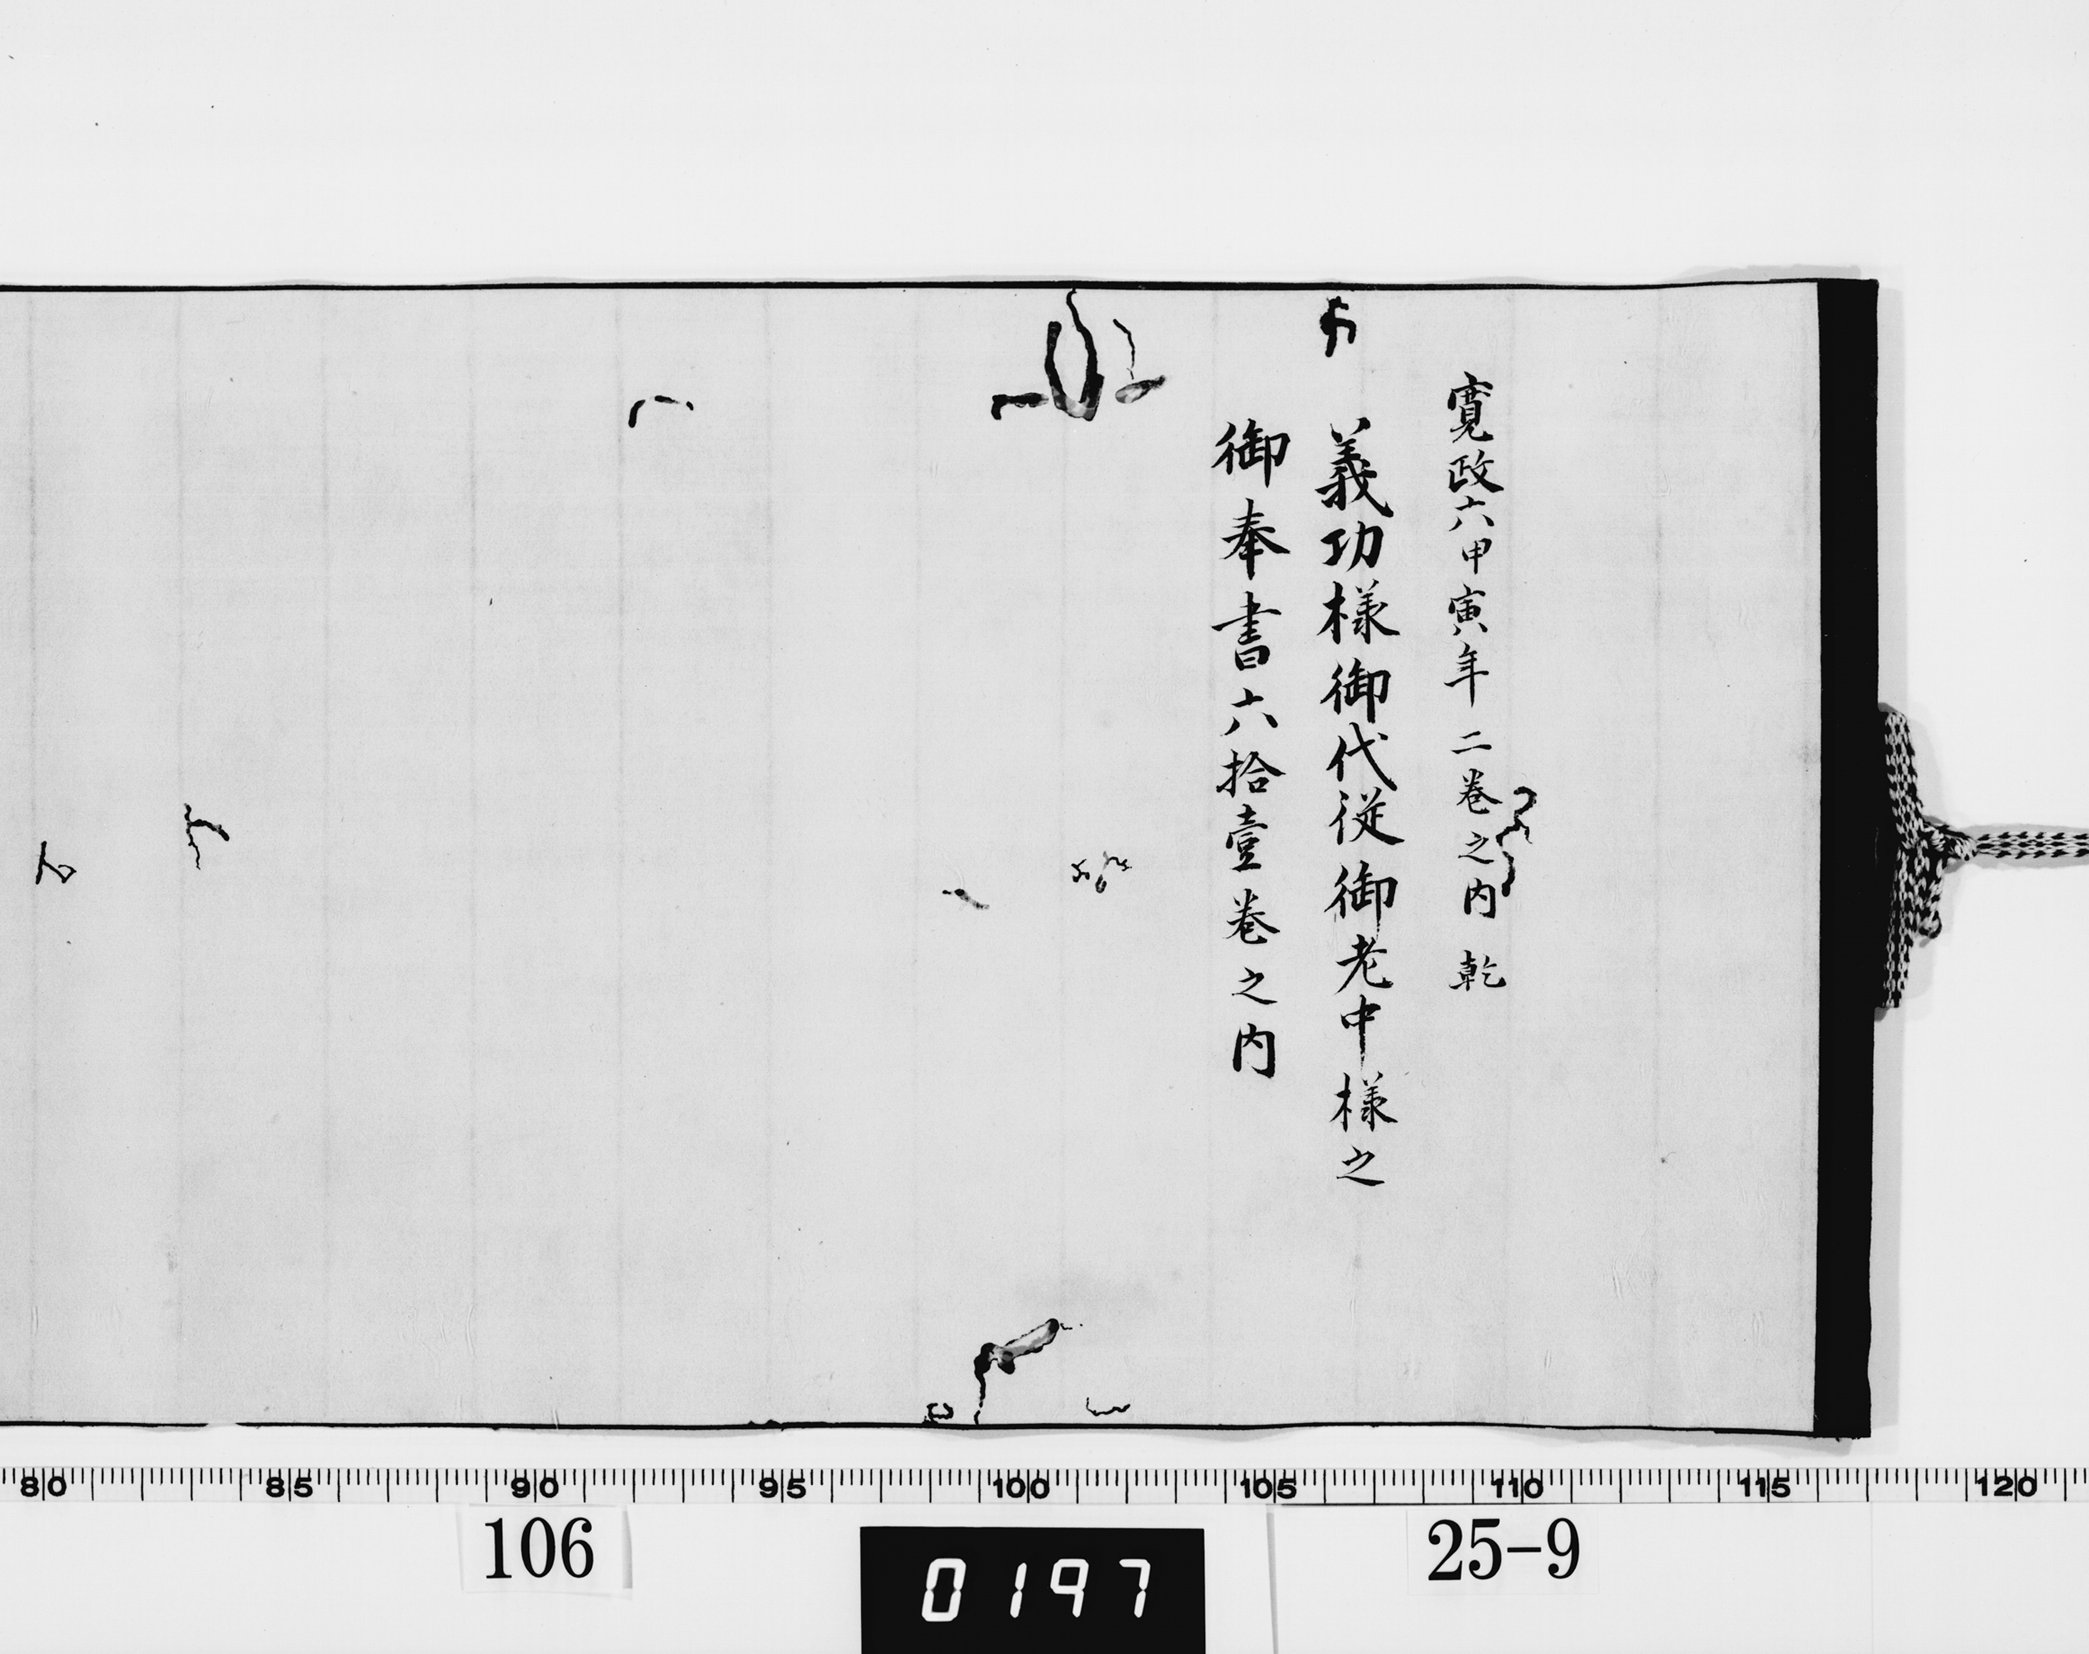 寛政六甲寅年 二巻之内 乾
義功様御代従御老中様之
御奉書六拾壹巻之内
80 85 90 95 100 105 110 115 120
106
0197
25-9